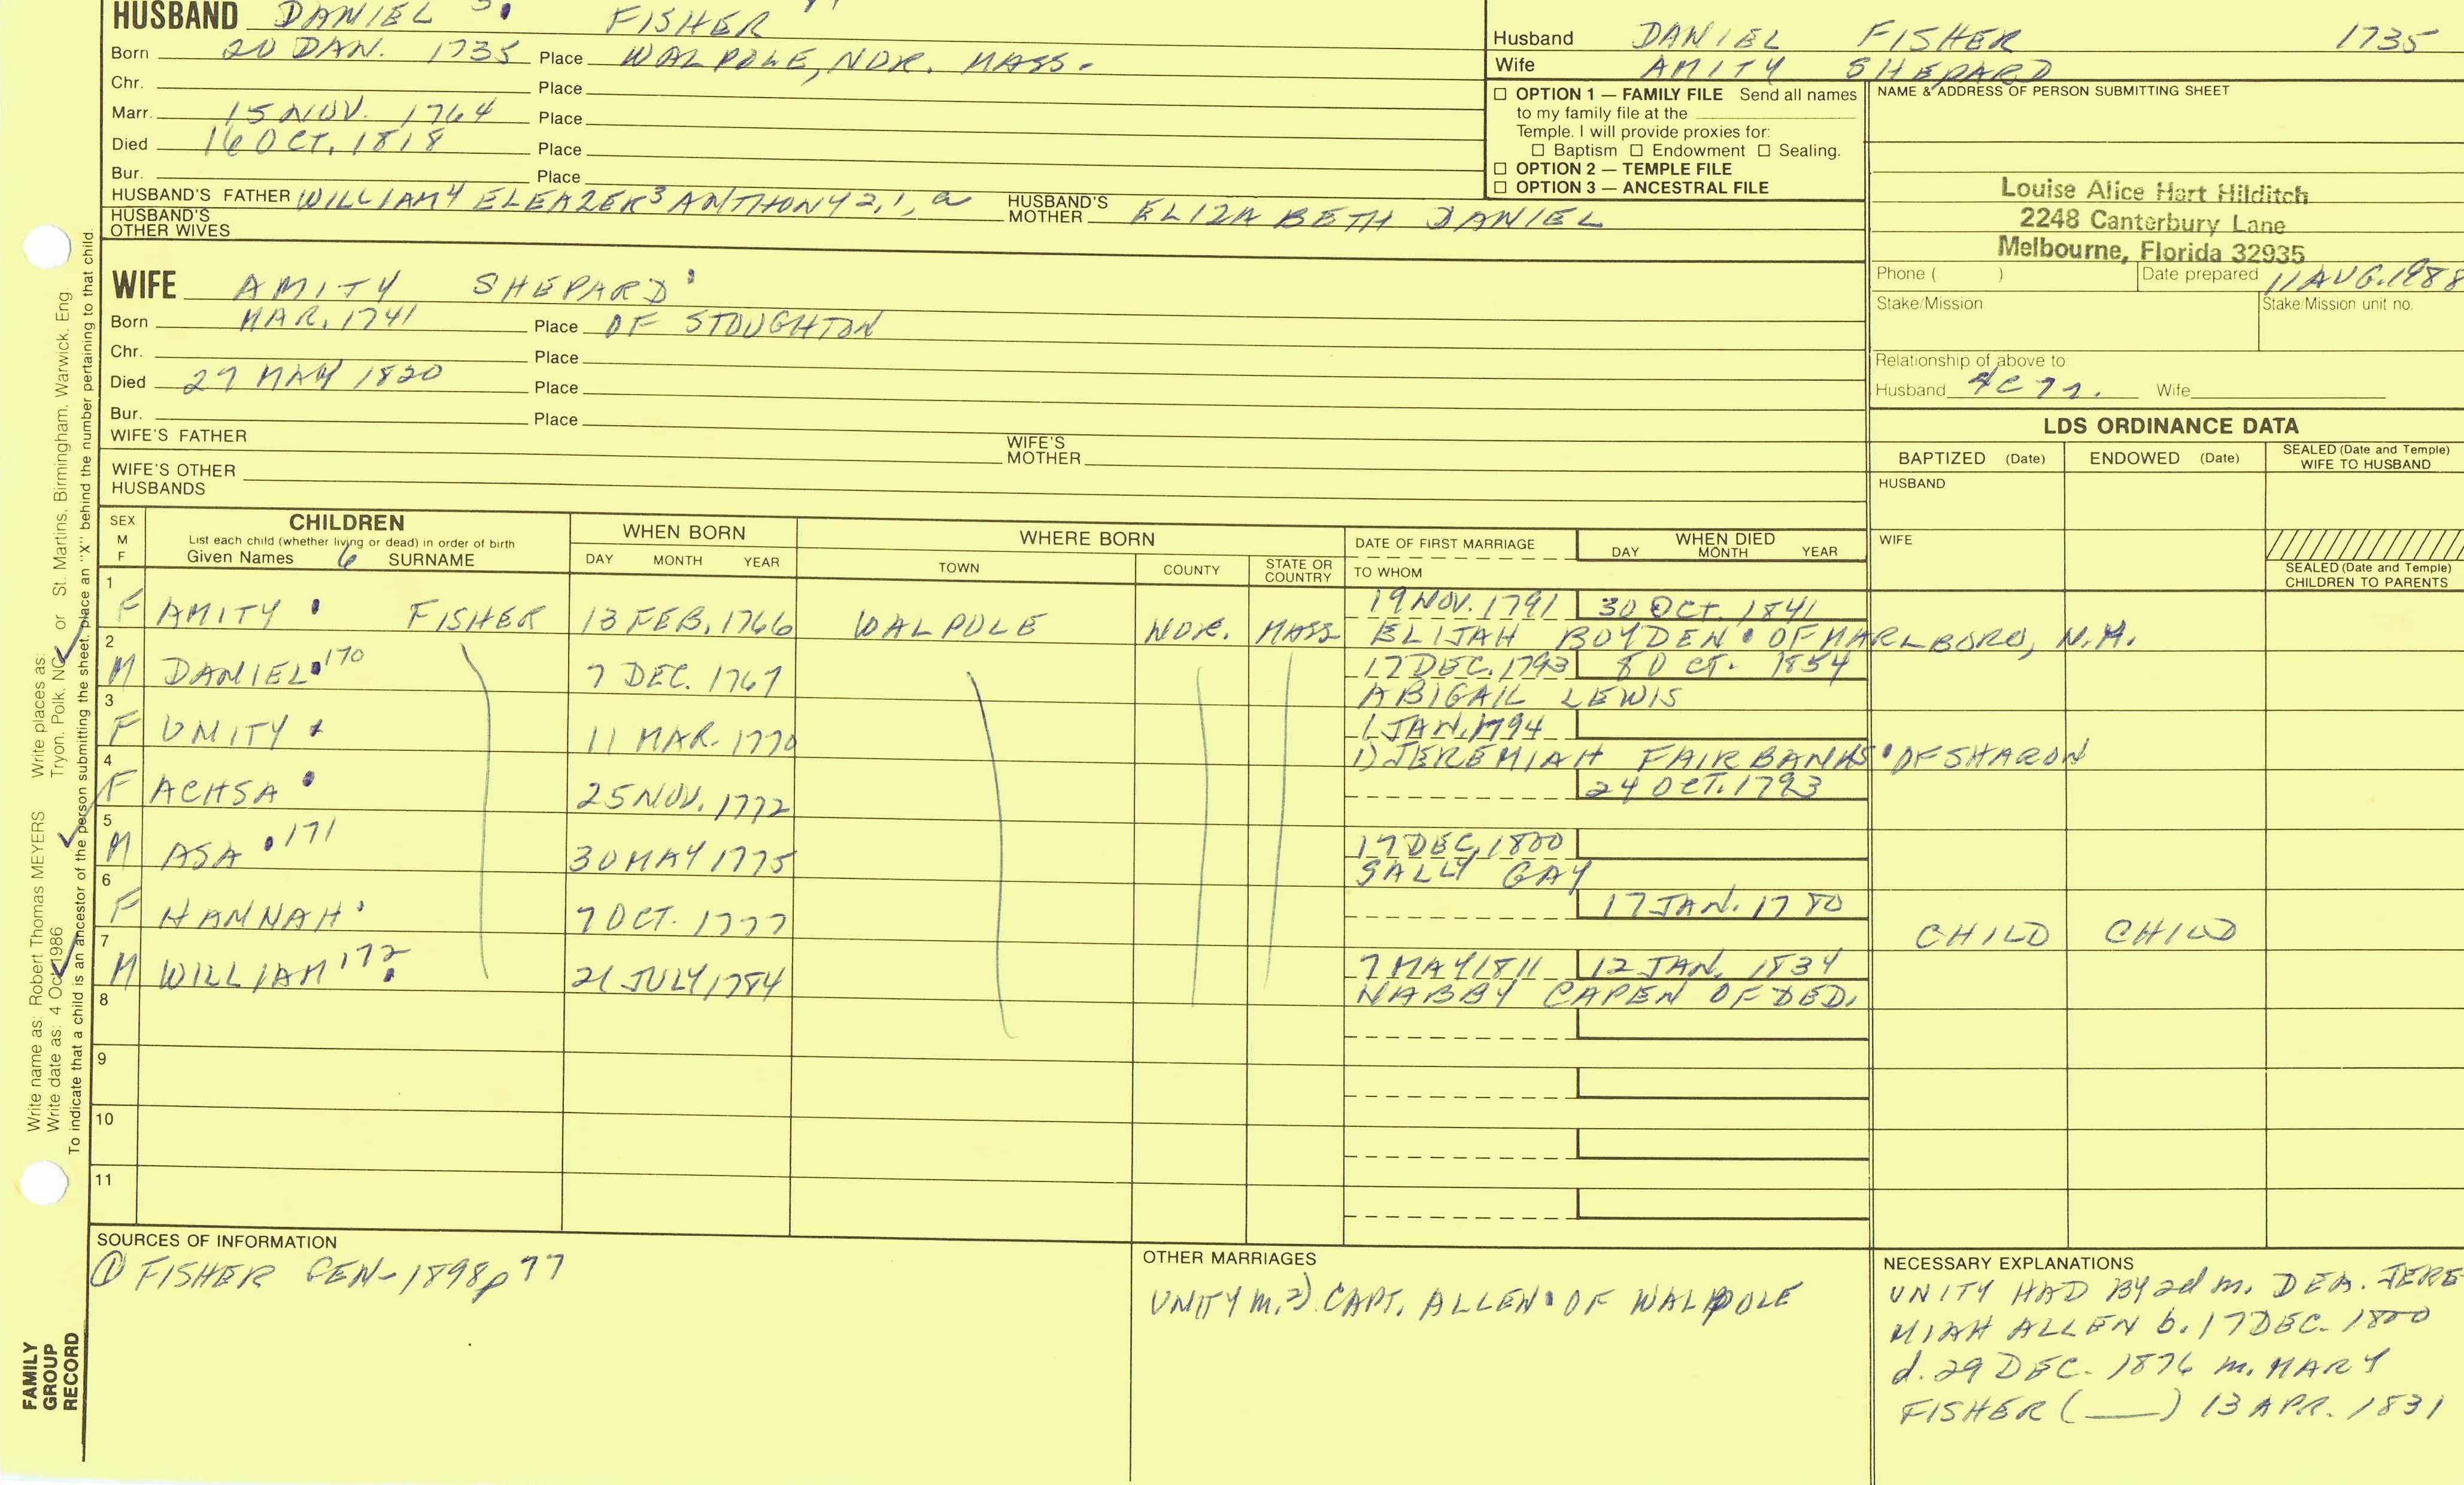 HUSBAND DANIEL 5. FISHER
Born 20 DAN. 1735 Place WALPOLE, NOR. MASS.
Chr. Place
Marr. 15 NOV. 1764 Place
Died 16 OCT. 1818 Place
Bur. Place
HUSBAND'S FATHER WILLIAM4 ELEAZER3 ANTHONY2,1, a HUSBAND'S MOTHER ELIZABETH DANIEL
HUSBAND'S OTHER WIVES
Husband DANIEL FISHER 1735
Wife AMITY SHEPARD
☐ OPTION 1 — FAMILY FILE Send all names
to my family file at the
Temple. I will provide proxies for:
☐ Baptism ☐ Endowment ☐ Sealing.
☐ OPTION 2 — TEMPLE FILE
☐ OPTION 3 — ANCESTRAL FILE
NAME & ADDRESS OF PERSON SUBMITTING SHEET
Louise Alice Hart Hilditch
2248 Canterbury Lane
Melbourne, Florida 32935
Phone ( ) Date prepared 11 AUG. 1988
Stake/Mission Stake/Mission unit no.
Relationship of above to
Husband Wife
WIFE AMITY SHEPARD
Born MAR. 1741 Place OF STOUGHTON
Chr. Place
Died 27 MAY 1820 Place
Bur. Place
WIFE'S FATHER WIFE'S MOTHER
WIFE'S OTHER HUSBANDS
LDS ORDINANCE DATA
BAPTIZED (Date) ENDOWED (Date) SEALED (Date and Temple) WIFE TO HUSBAND
HUSBAND
WIFE
SEALED (Date and Temple) CHILDREN TO PARENTS
SEX M F
CHILDREN
List each child (whether living or dead) in order of birth
Given Names 6 SURNAME
WHEN BORN
DAY MONTH YEAR
WHERE BORN
TOWN COUNTY STATE OR COUNTRY
DATE OF FIRST MARRIAGE
TO WHOM
WHEN DIED
DAY MONTH YEAR
1 F AMITY FISHER 13 FEB. 1766 WALPOLE NOR. MASS 19 NOV. 1791 30 OCT. 1841
ELIJAH BOYDEN OF MARLBORO, N.H.
2 M DANIEL 170 7 DEC. 1767 17 DEC. 1793 8 OCT. 1854
ABIGAIL LEWIS
3 F UNITY 11 MAR. 1770 1 JAN. 1794
1) JEREMIAH FAIRBANKS OF SHARON
4 F ACHSA 25 NOV. 1772 24 OCT. 1793
5 M ASA 171 30 MAY 1775 17 DEC. 1800
SALLY GAY
6 F HANNAH 7 OCT. 1777 17 JAN. 1780 CHILD CHILD
7 M WILLIAM 172 21 JULY 1784 7 MAY 1811 12 JAN. 1834
NABBY CAPEN OF DED.
8
9
10
11
SOURCES OF INFORMATION
① FISHER GEN-1898 p 77
OTHER MARRIAGES
UNITY m. 2) CAPT. ALLEN OF WALPOLE
NECESSARY EXPLANATIONS
UNITY HAD BY 2d m. DEA. JERE
MIAH ALLEN b. 17 DEC. 1800
d. 29 DEC. 1876 m. MARY
FISHER (___) 13 APR. 1831
Write name as: Robert Thomas MEYERS Write places as: St. Martins, Birmingham, Warwick, Eng
Write date as: 4 Oct 1986 Tryon, Polk, NC or
To indicate that a child is an ancestor of the person submitting the sheet, place an "X" behind the number pertaining to that child.
FAMILY
GROUP
RECORD